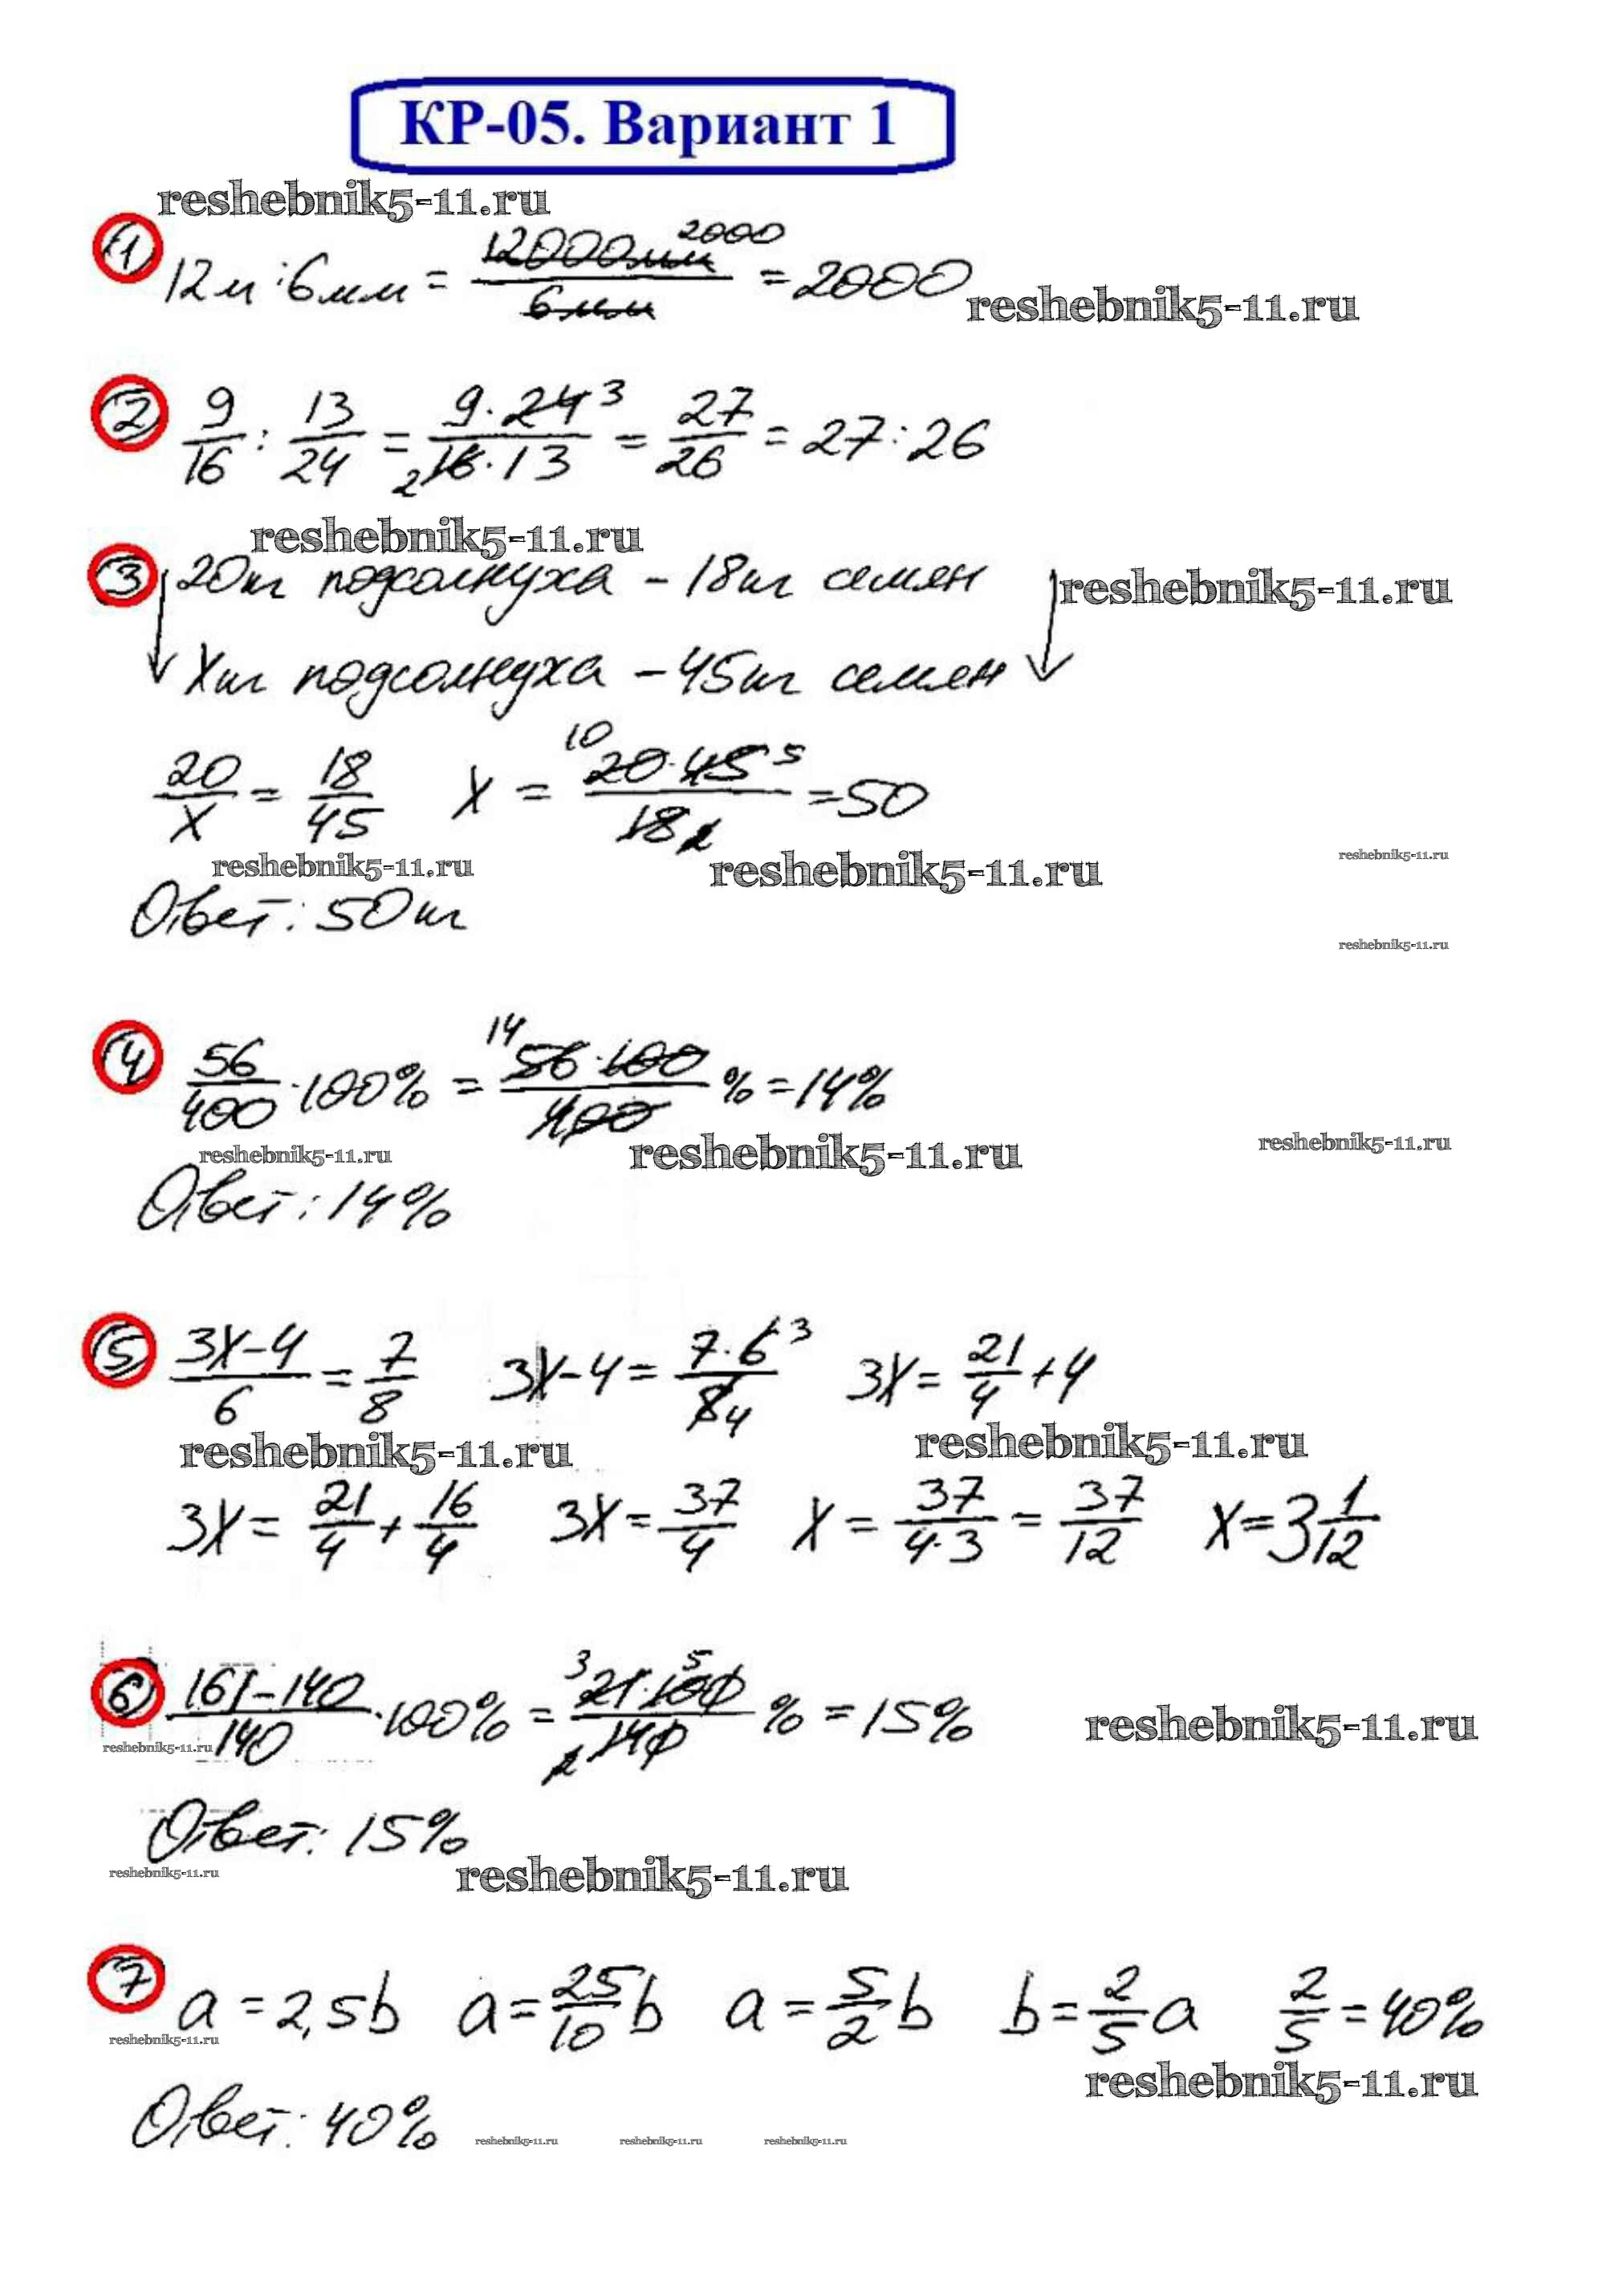 КР-05. Вариант 1
reshebnik5-11.ru
1 12м : 6мм = 12000мм 2000 / 6мм = 2000
reshebnik5-11.ru
2 9/16 : 13/24 = 9·24 3 / 2 16·13 = 27/26 = 27:26
reshebnik5-11.ru
3 20кг подсолнуха – 18кг семян
reshebnik5-11.ru
Xкг подсолнуха – 45кг семян
20/X = 18/45 X = 10 20·45 5 / 18 2 = 50
reshebnik5-11.ru reshebnik5-11.ru reshebnik5-11.ru
Ответ: 50кг
reshebnik5-11.ru
4 56/400 ·100% = 14 56·100 / 400 % = 14%
reshebnik5-11.ru reshebnik5-11.ru reshebnik5-11.ru
Ответ: 14%
5 3X–4 / 6 = 7/8 3X–4 = 7·6 3 / 8 4 3X = 21/4 + 4
reshebnik5-11.ru reshebnik5-11.ru
3X = 21/4 + 16/4 3X = 37/4 X = 37/4·3 = 37/12 X = 3 1/12
6 161–140 / 140 ·100% = 3 21·100 5 / 2 140 % = 15%
reshebnik5-11.ru
reshebnik5-11.ru
Ответ: 15%
reshebnik5-11.ru reshebnik5-11.ru
7 a = 2,5b a = 25/10 b a = 5/2 b b = 2/5 a 2/5 = 40%
reshebnik5-11.ru
reshebnik5-11.ru
Ответ: 40%
reshebnik5-11.ru reshebnik5-11.ru reshebnik5-11.ru